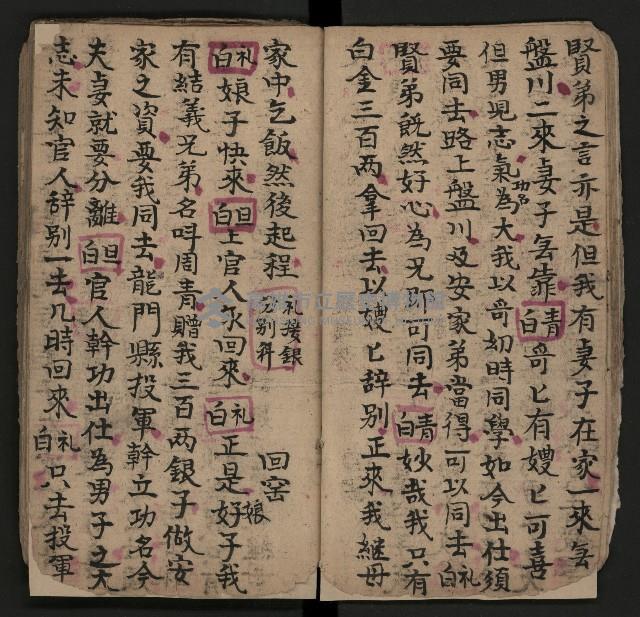 賢弟之言亦是但我有妻子在家一來無
盤川二來妻子無靠青白哥匕有嫂匕可喜
但男兒志氣功名為大我以哥幼時同學如今出仕須
要同去路上盤川及安家弟當得可以同去礼白
賢弟既然好心為兄即可同去青白妙哉我只有
白金三百両拿回去以嫂匕辞別正來我継母
家中乞飯然後起程礼接銀分別科 回窑
礼白娘子快來旦白土官人尔回來礼白正是好子娘我
有結義兄弟名叫周青贈我三百両銀子做安
家之資要我同去龍門縣投軍幹立功名今
夫妻就要分離旦白官人幹功出仕為男子之大
志未知官人辞別一去几時回來礼白只去投軍